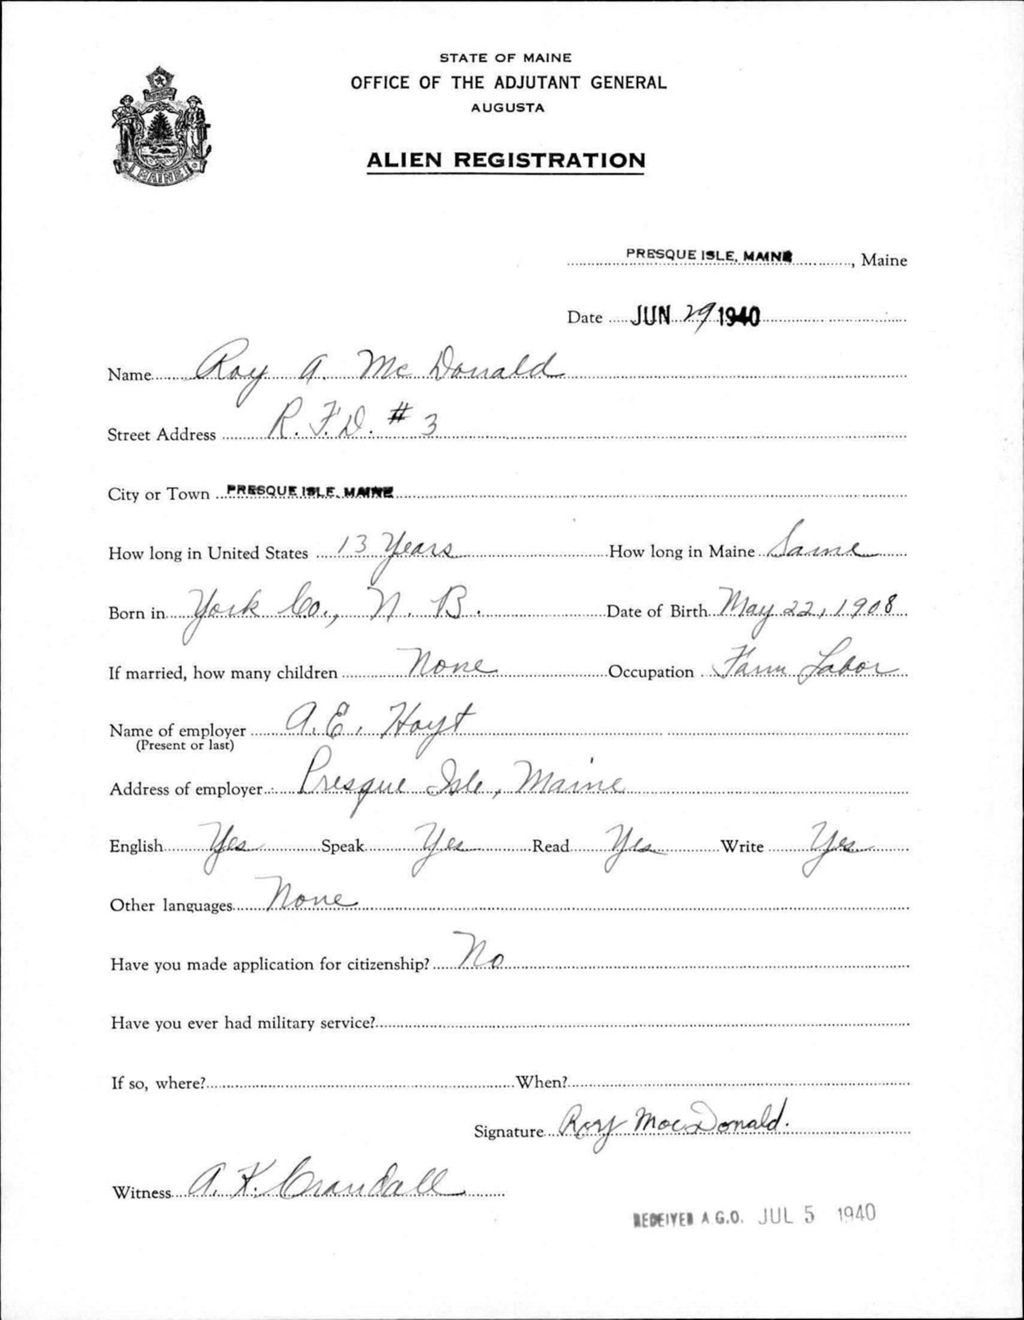 STATE OF MAINE
OFFICE OF THE ADJUTANT GENERAL
AUGUSTA
ALIEN REGISTRATION
MAINE
PRESQUE ISLE, MAINE, Maine
Date JUN 29 1940
Name Roy A. McDonald
Street Address R.F.D. #3
City or Town PRESQUE ISLE, MAINE
How long in United States 13 Years How long in Maine Same
Born in York Co., N. B. Date of Birth May 22, 1908
If married, how many children None Occupation Farm Labor
Name of employer A. E. Hoyt
(Present or last)
Address of employer Presque Isle, Maine
English Yes Speak Yes Read Yes Write Yes
Other languages None
Have you made application for citizenship? No
Have you ever had military service?
If so, where? When?
Signature Roy MacDonald.
Witness A. K. Crandall
RECEIVED A.G.O. JUL 5 1940